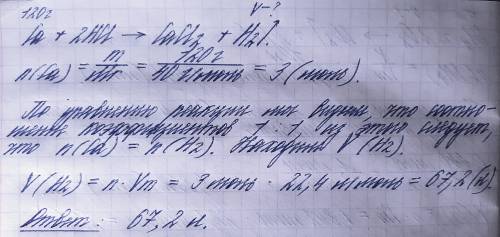 120г V-?
Ca + 2HCl → CaCl₂ + H₂↑.
n(Ca) = m/Mr = 120г/40 г/моль = 3 (моль).
По уравнению реакции мы видим, что соотно-
шение коэффициентов 1:1, из этого следует,
что n(Ca) = n(H₂). Находим V(H₂).
V(H₂) = n · Vm = 3 моль · 22,4 л/моль = 67,2 (л).
Ответ: 67,2 л.